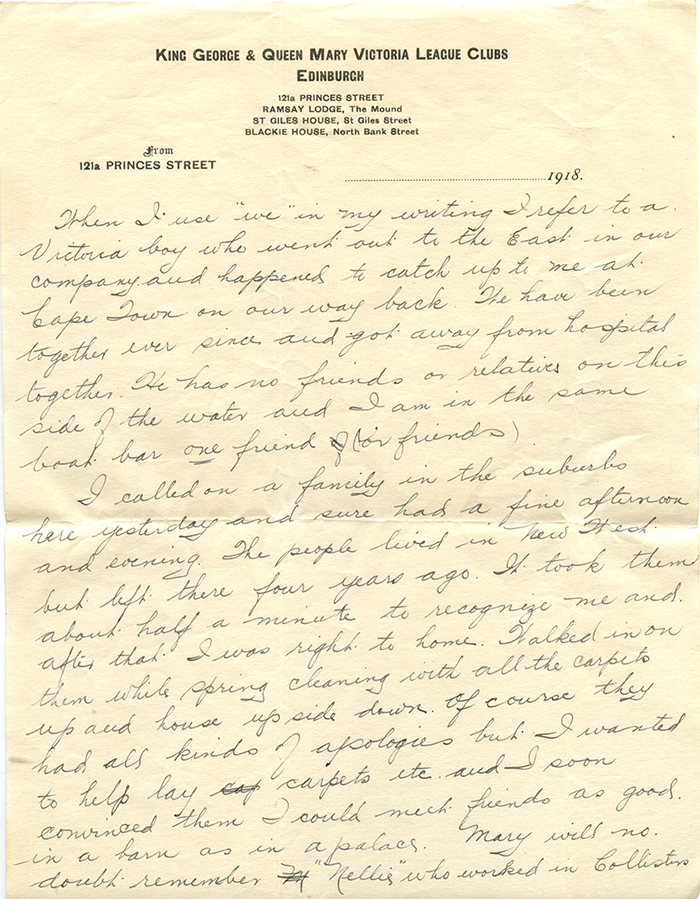 KING GEORGE & QUEEN MARY VICTORIA LEAGUE CLUBS
EDINBURGH
121a PRINCES STREET
RAMSAY LODGE, The Mound
ST GILES HOUSE, St Giles Street
BLACKIE HOUSE, North Bank Street
From
121a PRINCES STREET
1918.
When I use "we" in my writing I refer to a
Victoria boy who went out to the East in our
company and happened to catch up to me at
Cape Town on our way back. The have been
together ever since and got away from hospital
together. He has no friends or relatives on this
side of the water and I am in the same
boat bar one friend of (or friends)
I called on a family in the suburbs
here yesterday and sure had a fine afternoon
and evening. The people lived in New West.
but left there four years ago. It took them
about half a minute to recognize me and
after that I was right to home. Walked in on
them while spring cleaning with all the carpets
up and house up side down. Of course they
had all kinds of apologies but I wanted
to help lay cap carpets etc. and I soon
convinced them I could meet friends as good
in a barn as in a palace. Mary will no
doubt remember "Nellie" who worked in Collisters